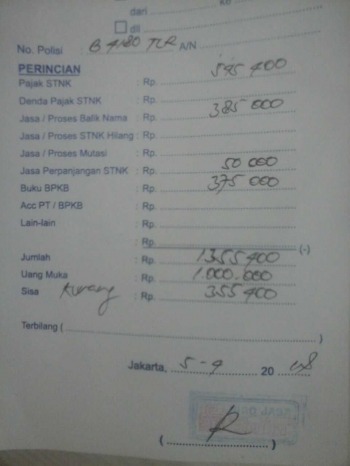 dari
ke
dll
No. Polisi : B 4180 TLR A/N
PERINCIAN
Pajak STNK : Rp. 545 400
Denda Pajak STNK : Rp.
Jasa / Proses Balik Nama : Rp. 385 000
Jasa / Proses STNK Hilang : Rp.
Jasa / Proses Mutasi : Rp.
Jasa Perpanjangan STNK : Rp. 50 000
Buku BPKB : Rp. 375 000
Acc PT / BPKB : Rp.
Lain-lain : Rp.
: Rp.
(-)
Jumlah : Rp. 1355 400
Uang Muka : Rp. 1.000.000
Sisa Kurang : Rp. 355 400
Terbilang ( )
Jakarta, 5-9 20 08
( )